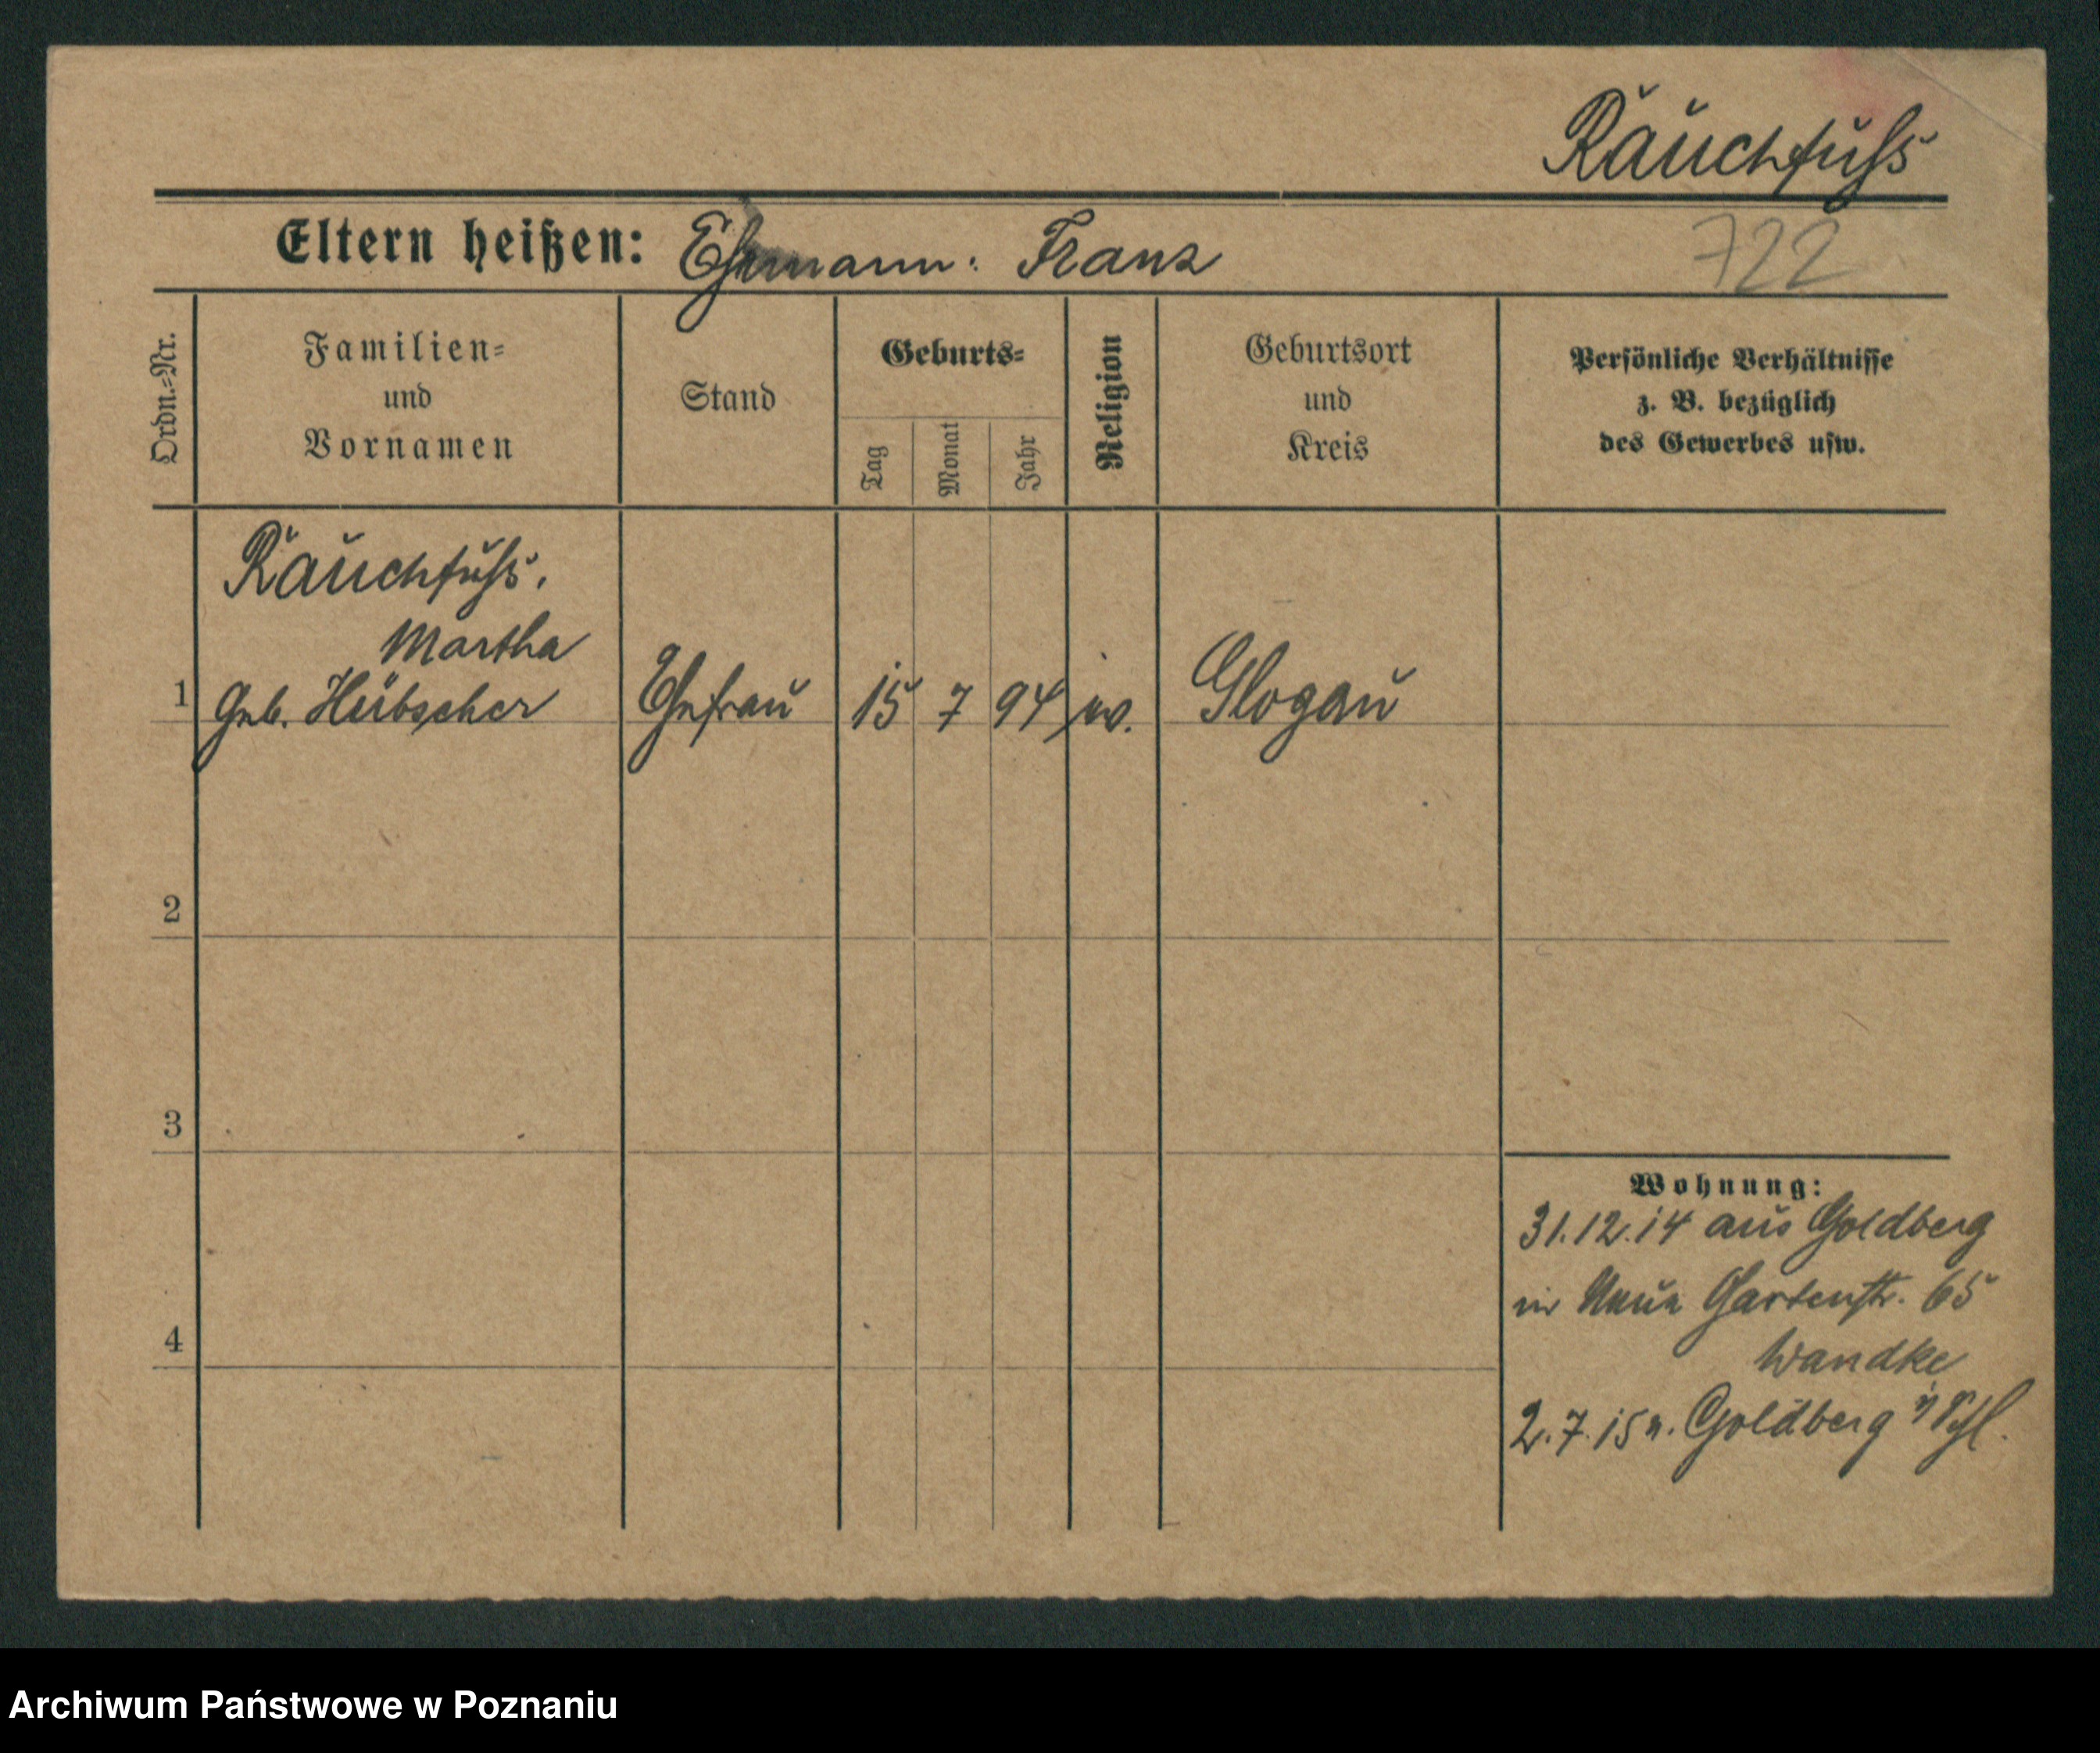 Rauchfuss
Eltern heißen: Ehemann: Franz
722
Ordn.=Nr.
Familien=
und
Vornamen
Stand
Geburts=
Tag
Monat
Jahr
Religion
Geburtsort
und
Kreis
Persönliche Verhältnisse
z. B. bezüglich
des Gewerbes usw.
Rauchfuss.
Martha
1 Geb. Hübscher Ehefrau 15 7 94 ev. Glogau
2
3
4
Wohnung:
31.12.14 aus Goldberg
in Neue Gartenstr. 65
Wandke
2.7.15 n. Goldberg i/Schl.
Archiwum Państwowe w Poznaniu